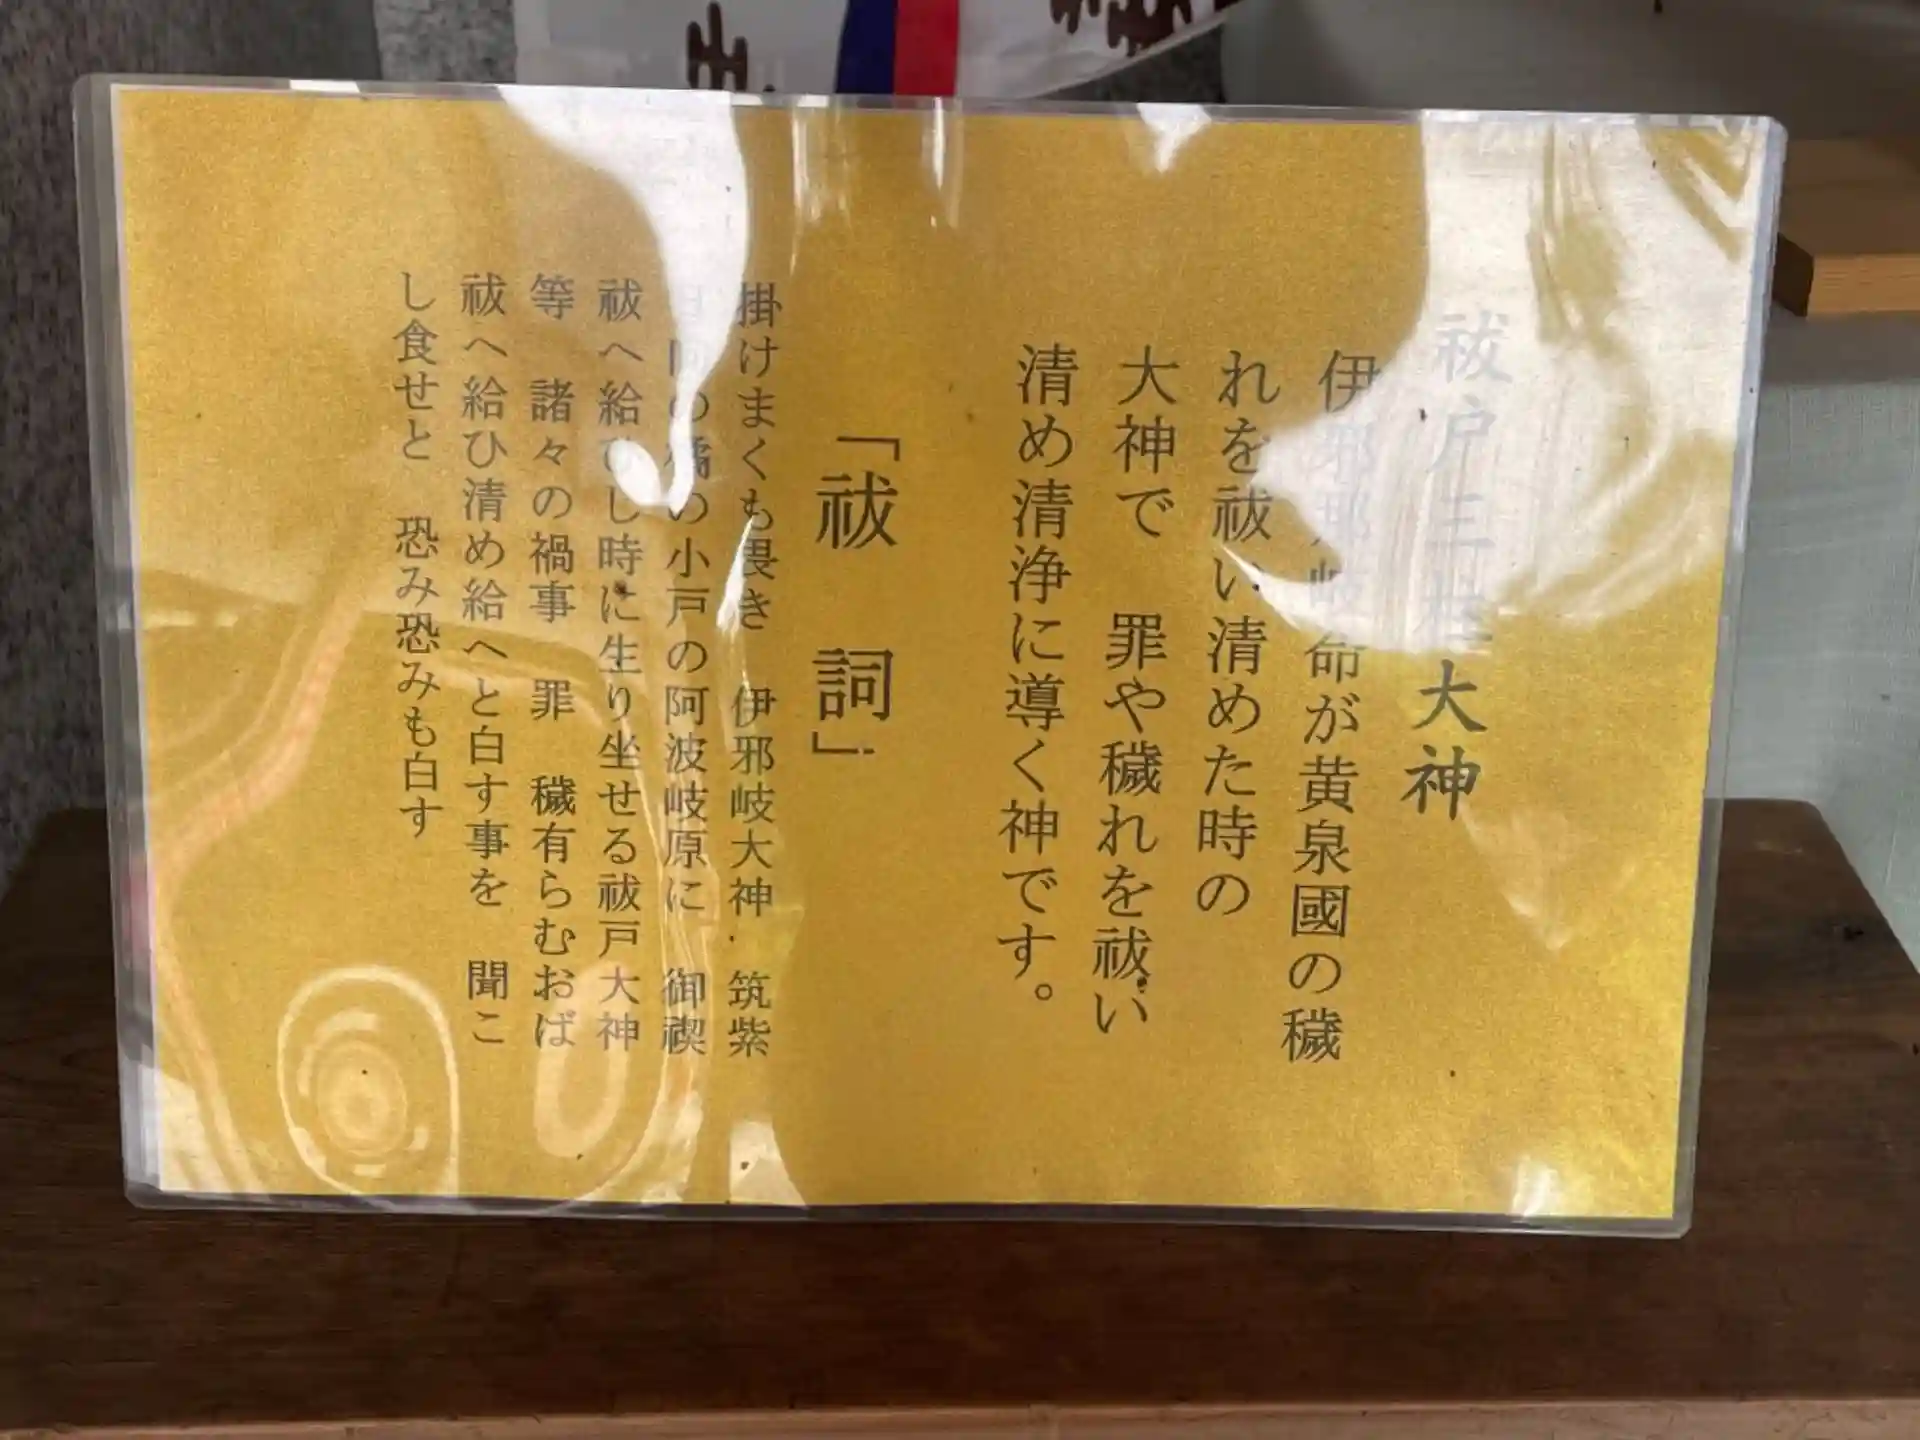 祓戸三柱大神
伊邪那岐命が黄泉國の穢
れを祓い清めた時の
大神で　罪や穢れを祓い
清め清浄に導く神です。
「祓　詞」
掛けまくも畏き　伊邪岐大神　筑紫
日向の橘の小戸の阿波岐原に　御禊
祓へ給ひし時に生り坐せる祓戸大神
等　諸々の禍事　罪　穢有らむおば
祓へ給ひ清め給へと白す事を　聞こ
し食せと　恐み恐みも白す